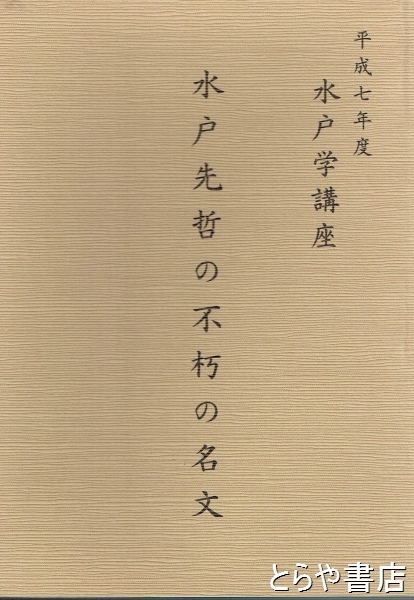 平成七年度
水戸学講座
水戸先哲の不朽の名文
とらや書店